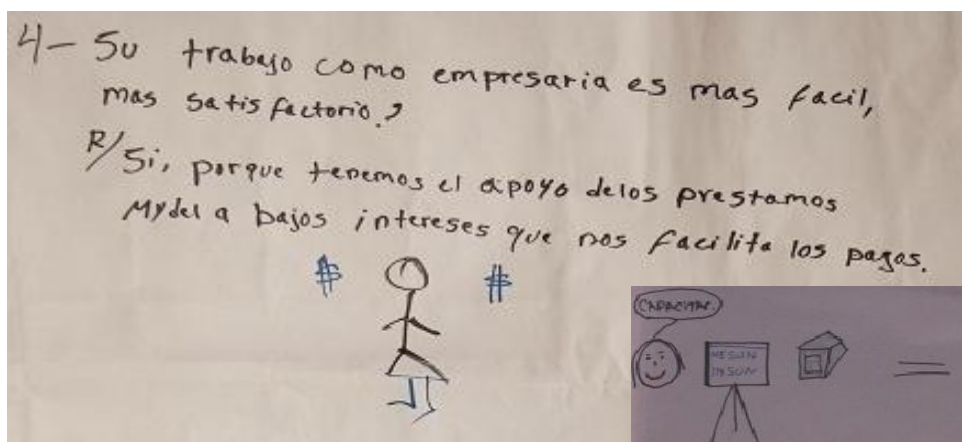 4- Su trabajo como empresaria es mas facil,
mas satisfactorio.?
R/ Si, porque tenemos el apoyo delos prestamos
Mydel a bajos intereses que nos facilita los pagos.
$ $
CAPACITAR